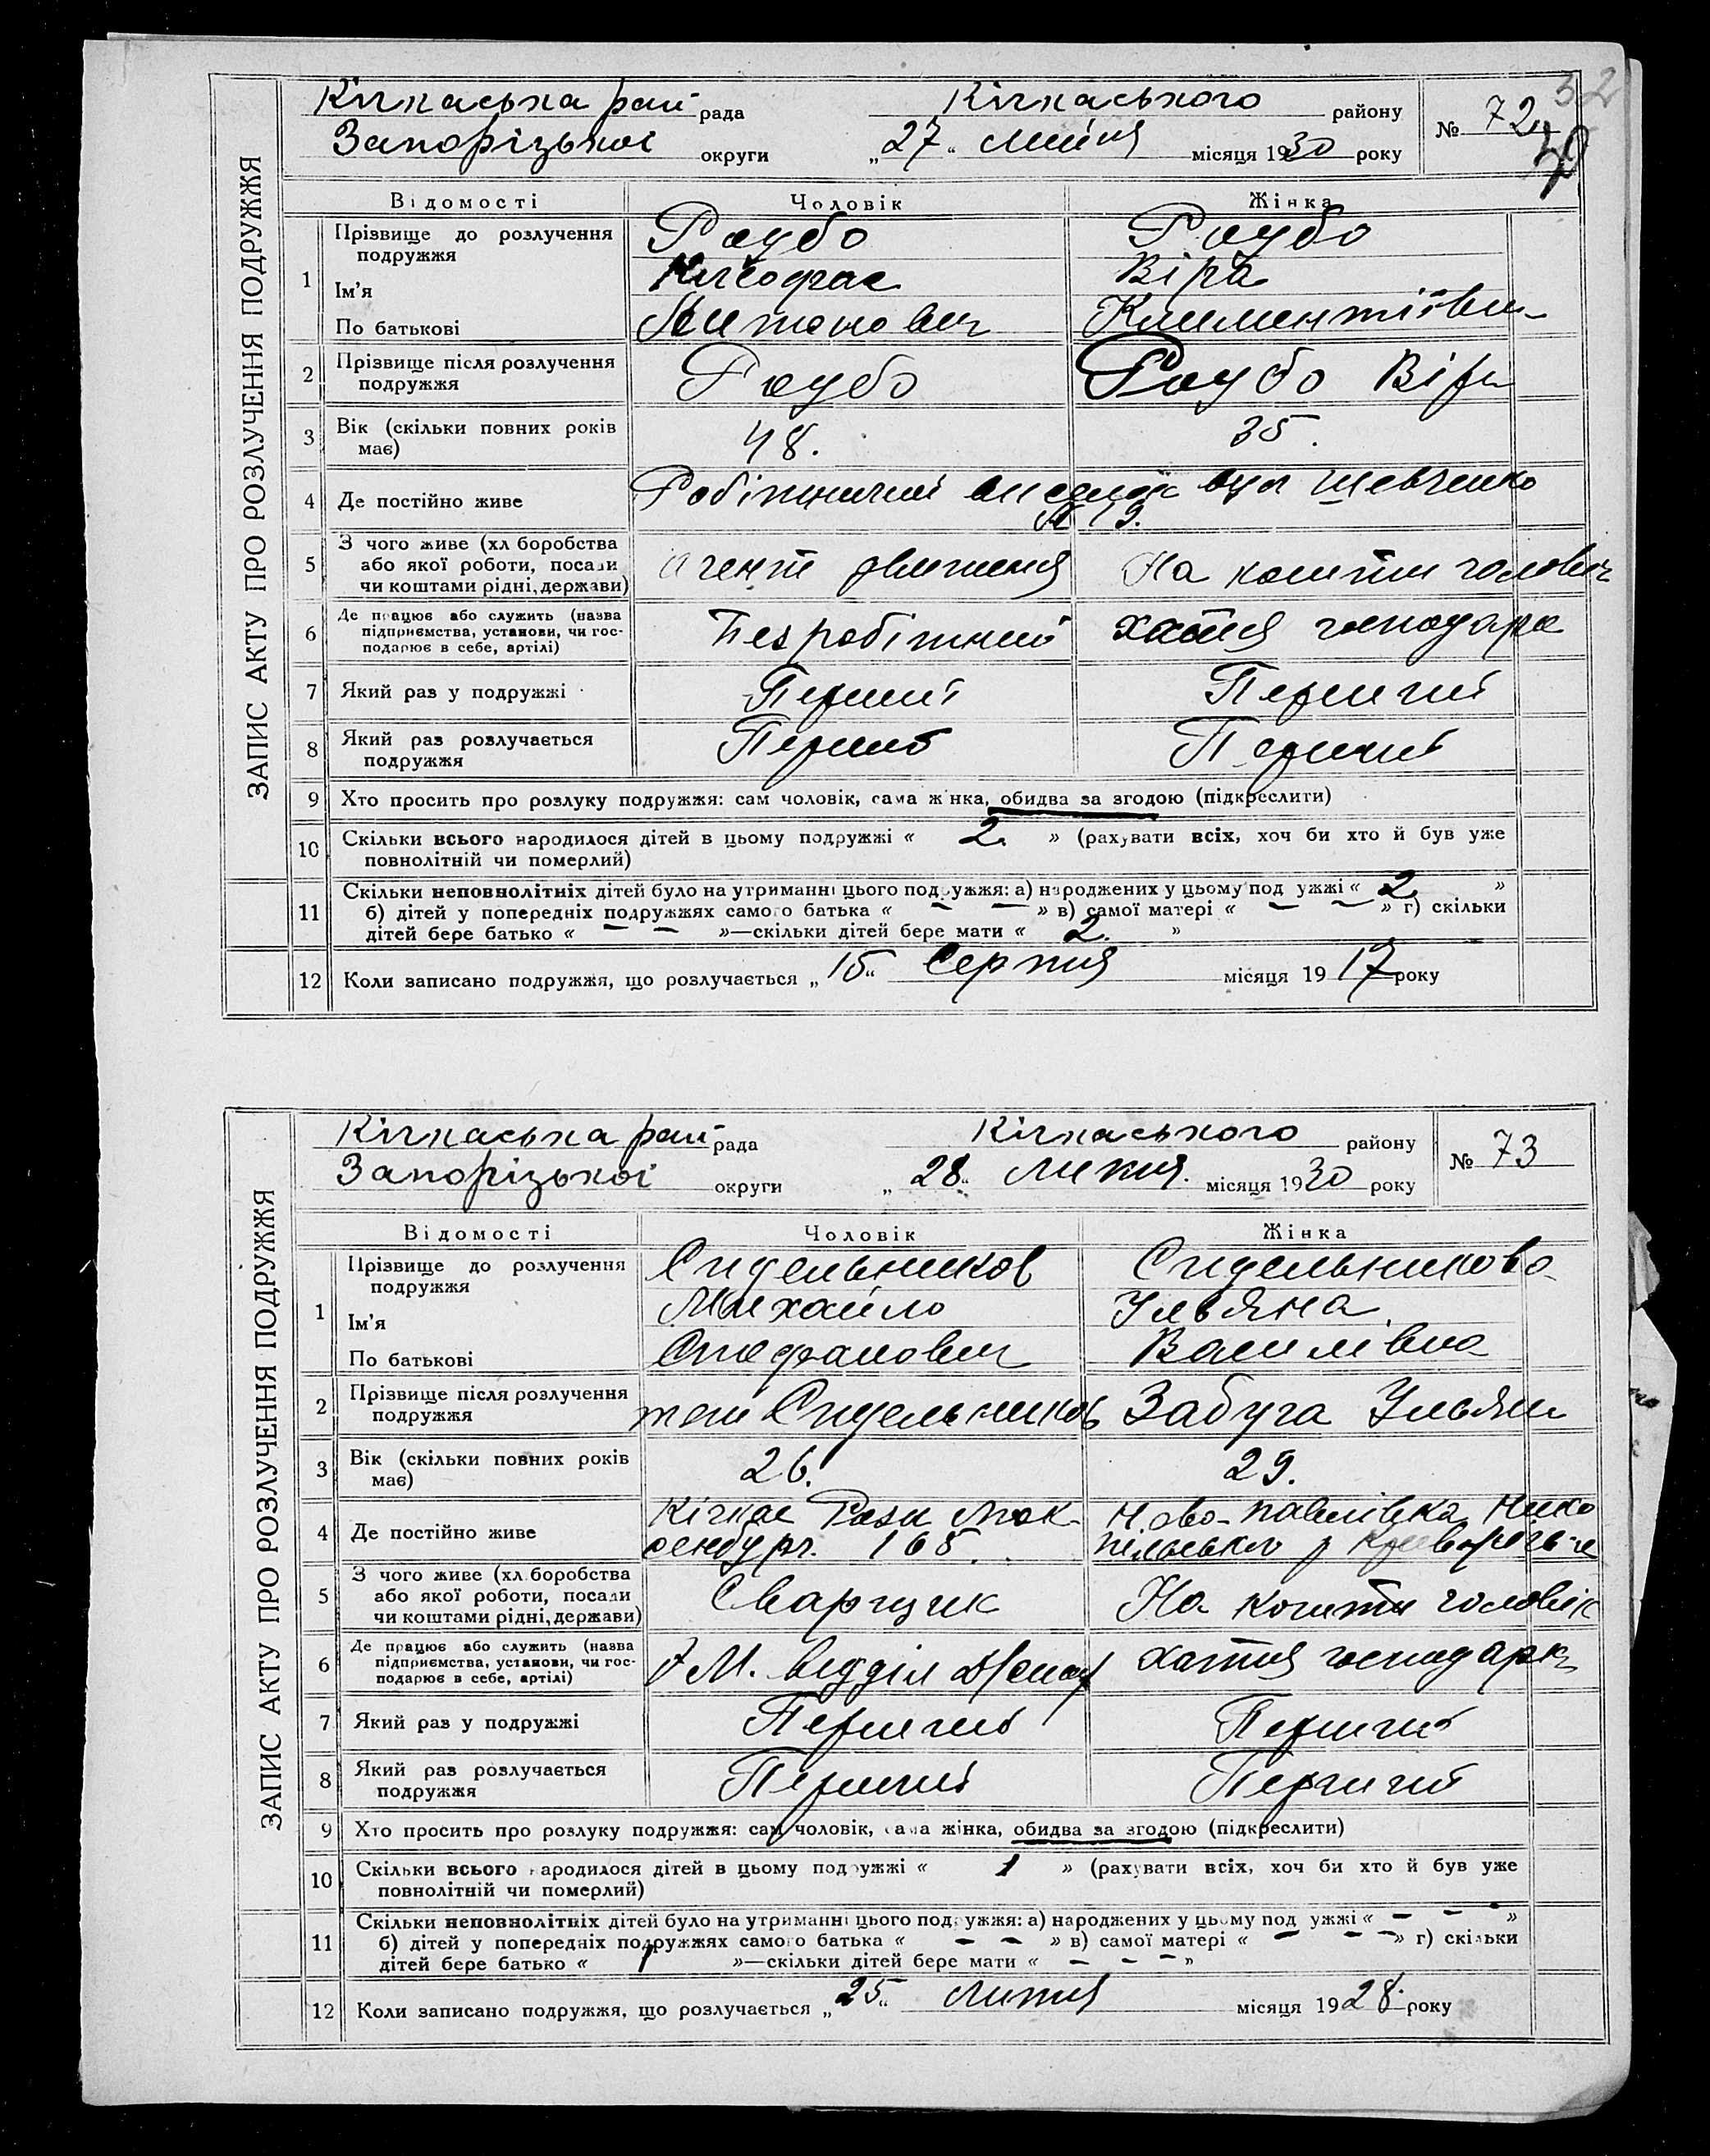 32
ЗАПИС АКТУ ПРО РОЗЛУЧЕННЯ ПОДРУЖЖЯ
Кічкаська рай рада Кічкаського району № 72
Запорізької округи „27“ липня місяця 1930 року
Відомості Чоловік Жінка
1 Прізвище до розлучення подружжя Раубо Раубо
Ім'я Віра
По батькові Климентіївн
2 Прізвище після розлучення подружжя Раубо Раубо Віра
3 Вік (скільки повних років має) 48. 35.
4 Де постійно живе Робітничий вул Шевченко
№ 19.
5 З чого живе (хліборобства або якої роботи, посади чи коштами рідні, держави) агент На кошти чоловік
6 Де працює або служить (назва підприємства, установи, чи господарює в себе, артілі) Безробітний хатня господарка
7 Який раз у подружжі Перший Перший
8 Який раз розлучається подружжя Перший Перший
9 Хто просить про розлуку подружжя: сам чоловік, сама жінка, обидва за згодою (підкреслити)
10 Скільки всього народилося дітей в цьому подружжі « 2. » (рахувати всіх, хоч би хто й був уже
повнолітній чи померлий)
11 Скільки неповнолітніх дітей було на утриманні цього подружжя: а) народжених у цьому подружжі « 2. »
б) дітей у попередніх подружжях самого батька « — — » в) самої матері « — — » г) скільки
дітей бере батько « — — »—скільки дітей бере мати « 2. »
12 Коли записано подружжя, що розлучається „15“ Серпня місяця 1917 року
ЗАПИС АКТУ ПРО РОЗЛУЧЕННЯ ПОДРУЖЖЯ
Кічкаська рай рада Кічкаського району № 73
Запорізької округи „28“ липня. місяця 1930 року
Відомості Чоловік Жінка
1 Прізвище до розлучення подружжя Сидельников Сидельникова
Ім'я Михайло Ульяна
По батькові Стефанович Василівна
2 Прізвище після розлучення подружжя теж Сидельников Забуга Ульяна
3 Вік (скільки повних років має) 26. 29.
4 Де постійно живе Кічкас Рози Люк- Ново-Павлівка Нико
сенбург. 168. пільського р Криворіж-
5 З чого живе (хліборобства або якої роботи, посади чи коштами рідні, держави) Сварщик На кошти чоловік
6 Де працює або служить (назва підприємства, установи, чи господарює в себе, артілі) М. відділ хатня господарка
7 Який раз у подружжі Перший Перший
8 Який раз розлучається подружжя Перший Перший
9 Хто просить про розлуку подружжя: сам чоловік, сама жінка, обидва за згодою (підкреслити)
10 Скільки всього народилося дітей в цьому подружжі « 1 » (рахувати всіх, хоч би хто й був уже
повнолітній чи померлий)
11 Скільки неповнолітніх дітей було на утриманні цього подружжя: а) народжених у цьому подружжі « — — — »
б) дітей у попередніх подружжях самого батька « — — » в) самої матері « — — — » г) скільки
дітей бере батько « 1 »—скільки дітей бере мати « — — — »
12 Коли записано подружжя, що розлучається „25“ Липня місяця 1928. року